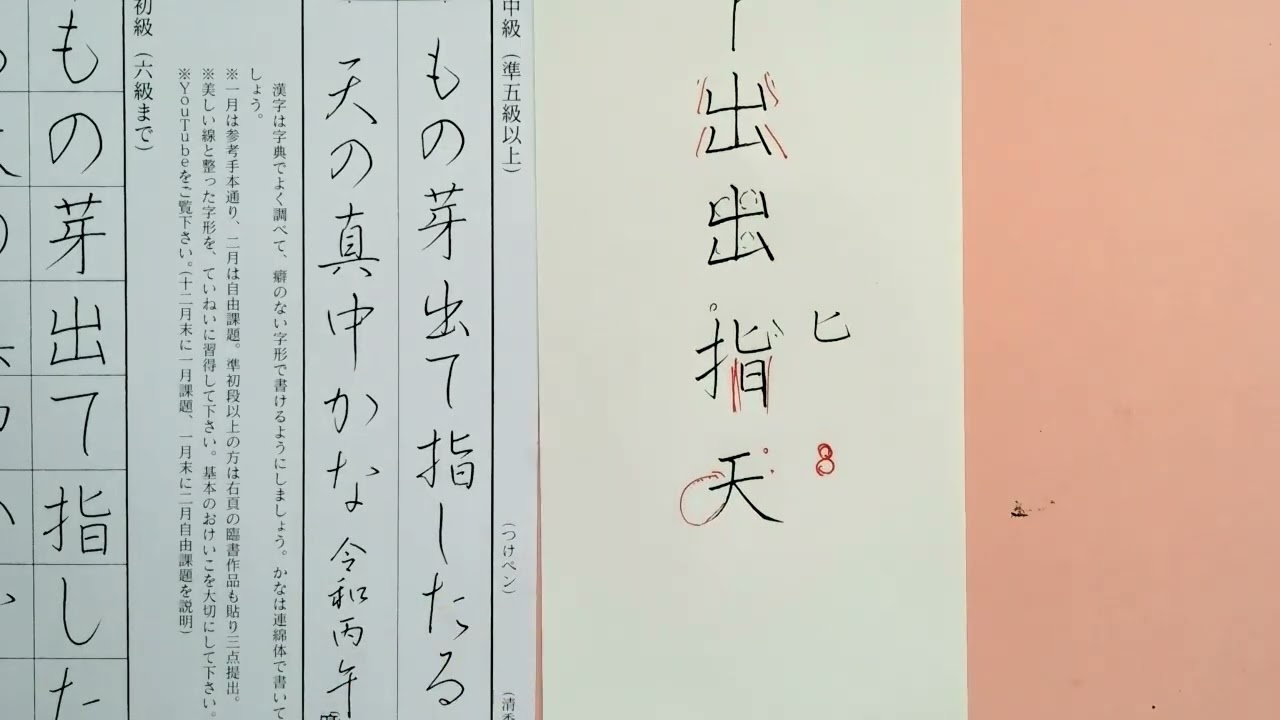 出
出
指 ヒ
天 8
中級(準五級以上)
(つけペン)
もの芽出て指したる
天の真中かな 令和丙午
漢字は字典でよく調べて、癖のない字形で書けるようにしましょう。かなは連綿体で書いて
しょう。
※一月は参考手本通り、二月は自由課題。準初段以上の方は右頁の臨書作品も貼り三点提出。
※美しい線と整った字形を、ていねいに習得して下さい。基本のおけいこを大切にして下さい。
※YouTubeをご覧下さい。(十二月末に一月課題、一月末に二月自由課題を説明)
初級(六級まで)
もの芽出て指した